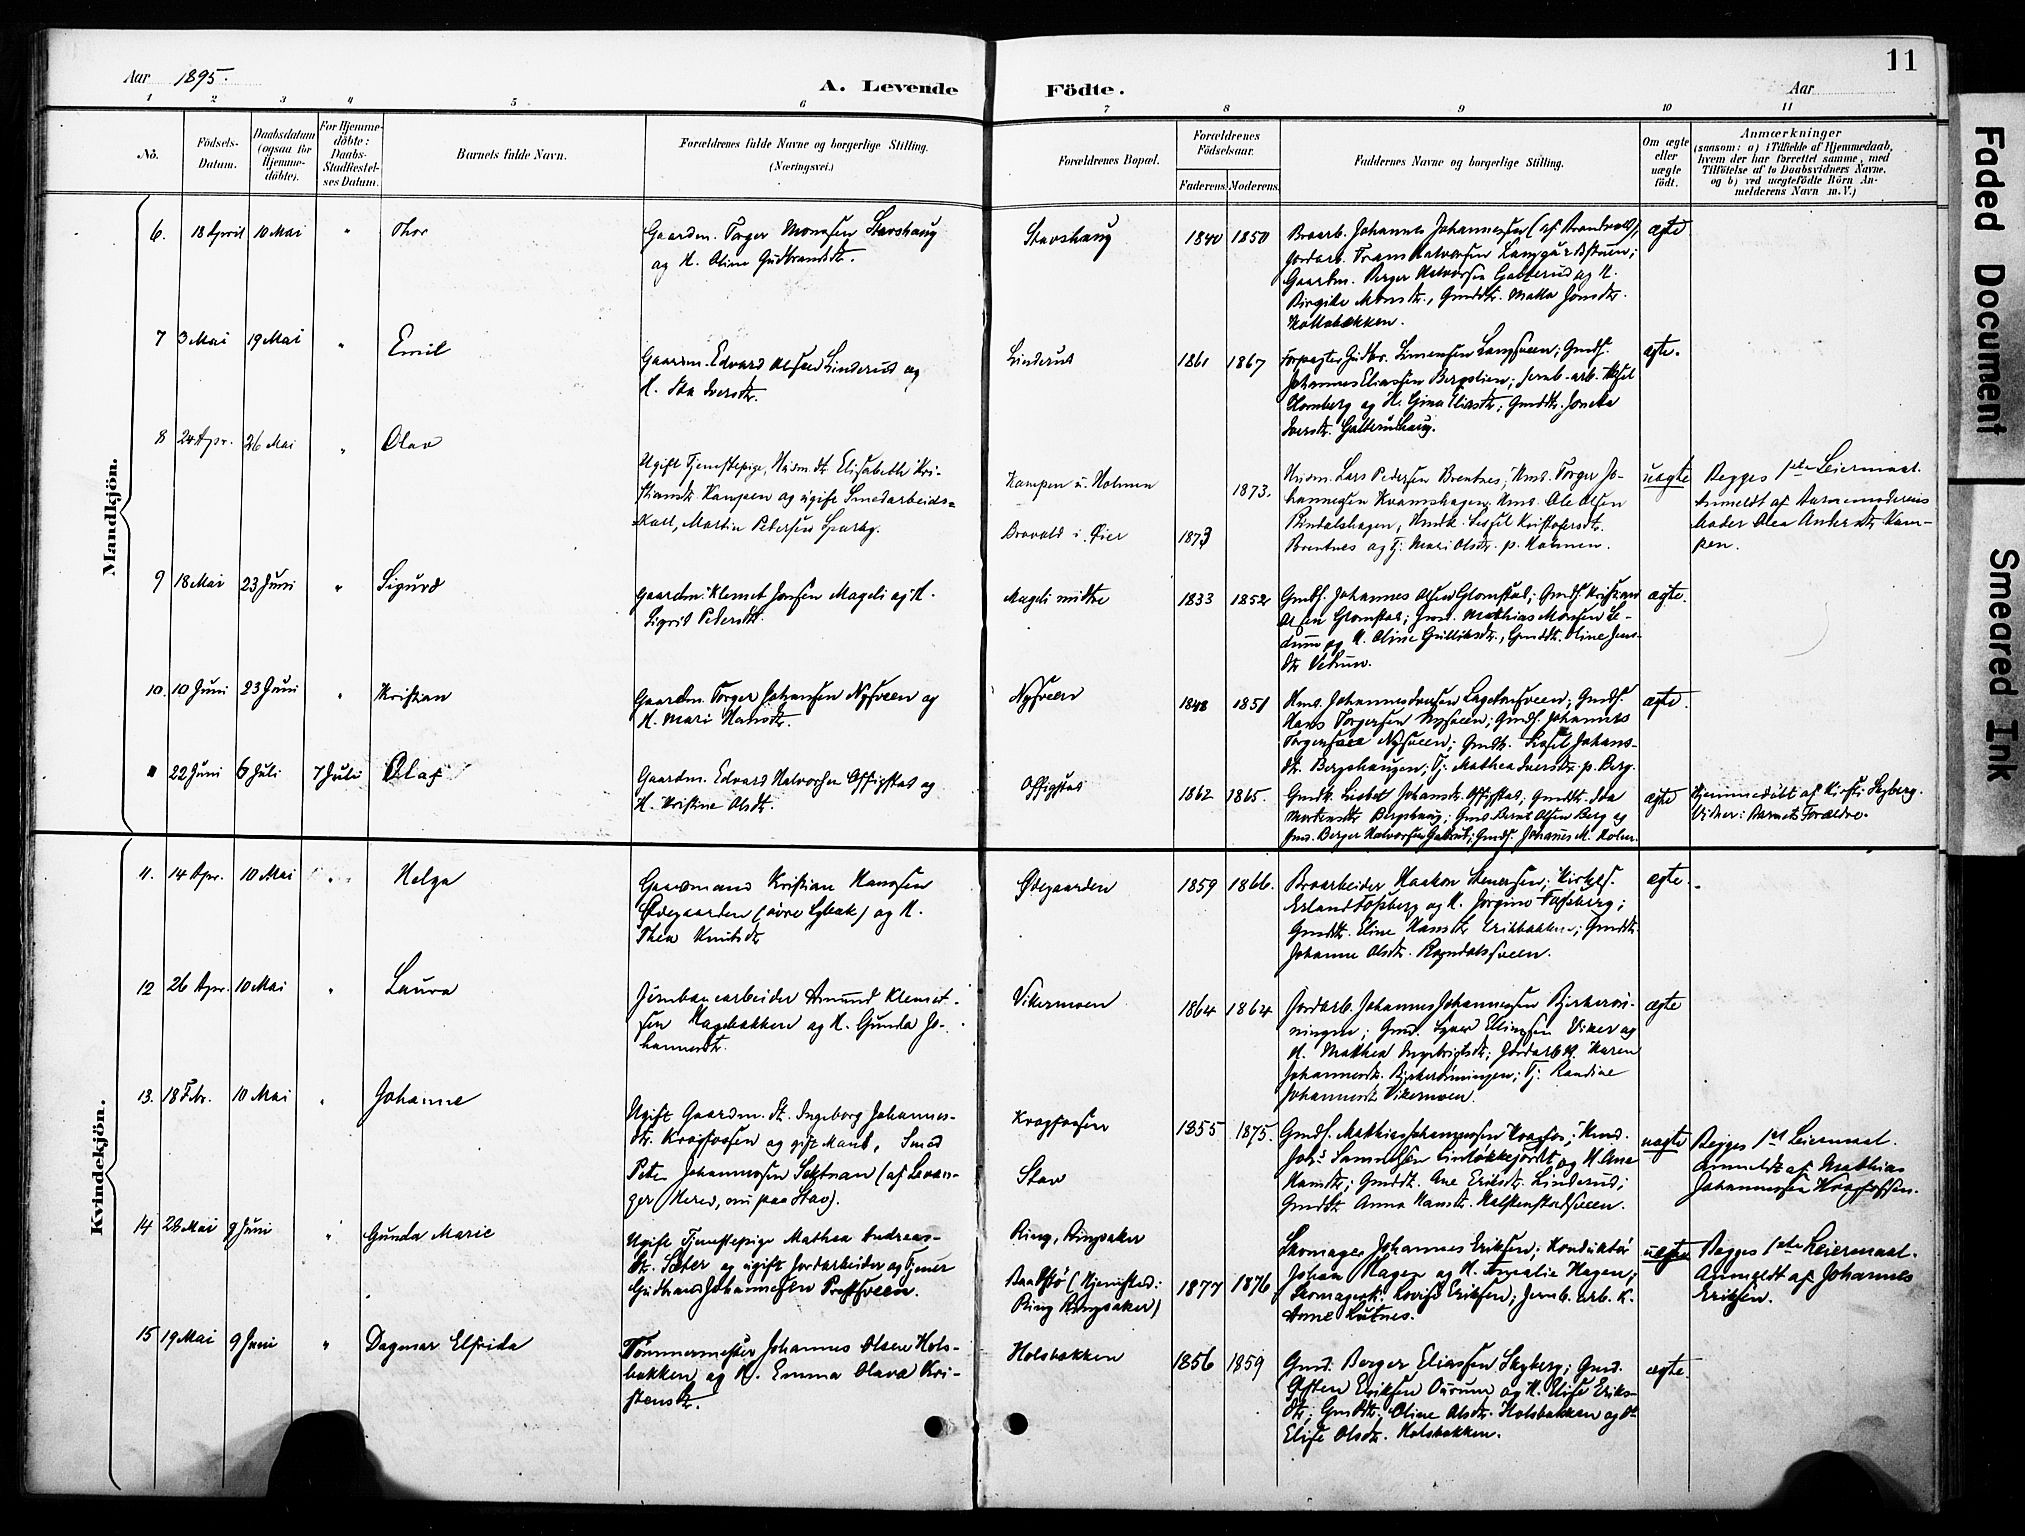 11
Aar 1895.
A. Levende Födte.
Aar
1 2 3 4 5 6 7 8 9 10 11
No.
Födsels-
Datum.
Daabsdatum
(ogsaa for
Hjemme-
döbte).
For Hjemme-
döbte:
Daabs-
Stadfæstel-
ses Datum.
Barnets fulde Navn.
Forældrenes fulde Navne og borgerlige Stilling.
(Næringsvei.)
Forældrenes Bopæl.
Forældrenes
Födselsaar.
Faderens. Moderens.
Faddernes Navne og borgerlige Stilling.
Om ægte
eller
uægte
födt.
Anmærkninger
(saasom: a) i Tilfælde af Hjemmedaab,
hvem der har forrettet samme, med
Tilföielse af to Daabsvidners Navne.
og b) ved uægtefödte Börn An-
melderens Navn m. V.)
Mandkjön.
6. 18 April 10 Mai " Thor
Gaardm. Torger Monssen Stavshaug
og H. Oline Gudbrandsdtr.
Stavshaug
1840 1850
Braarb. Johannes Johannessen (af Brandvold);
Jordarb. Frans Halvorsen
Gaardm. Berger Halvorsen Galterud og H.
Birgitte Monsdtr., Gmddtr. Mathea Jonsdtr.
ægte
7 3 Mai 19 Mai " Emil
Gaardm. Edvard Olsen Linderud og
H. Ida Iversdtr.
Linderud
1861 1867
Forpagter Gudbr. Simensen Langsveen; Gmds.
Johannes Eliassen Bergslien; Jernb.arb. Axsel
Glomberg og H. Gina Eliasdtr; Gmddtr.
Iversdtr. Galterudhaug.
ægte.
8 24 Apr. 26 Mai " Olav
Ugift Tjenestepige, Husm.dtr. Elisabeth Kri-
stiansdtr. Kampen og ugift Smedarbeids-
karl, Martin Petersen
Kampen u. Holmen
i Öier
1873 1873.
Husm. Lars Pedersen Brentnes; Hmd. Torger Jo-
hannessen Kramshagen, Hmd. Ole Olsen
Kristofersdtr.
Brentnes og Tj. Mari Olsdtr. p. Holmen.
uægte
Begges 1ste Leiermaal.
Anmeldt af Barnemoderens
Moder Olea Andersdtr. Kam-
pen.
9 18 Mai 23 Juni " Sigurd
Gaardm. Klemet Jonsen Mageli og H.
Sigrid Pedersdtr.
Mageli midtre
1833 1852
Gmds. Johannes Olsen Glomstad; Gmds. Kristian
Olsen Glomstad; Gmd. Mathias Monsen
og H. Oline Gulliksdtr., Gmddtr. Oline Jens-
dtr.
ægte.
10. 10 Juni 23 Juni " Kristian
Gaardm. Torger Johansen Nysveen og
H. Mari Hansdtr.
Nysveen
1848 1851
Hmd. Johannes Iversen
Hans Torgersen Nysveen; Gmds. Johannes
Torgersen Nysveen; Gmdtr. Johans-
dtr. Bergshaugen; Tj. Mathea Iversdtr. p. Berg.
ægte
11 22 Juni 6 Juli 7 Juli Olaf
Gaardm. Edvard Halvorsen Offigstad og
H. Kristine Olsdtr.
Offigstad
1862 1865.
Gmdk. Lisbet Johansdtr. Offigstad; Gmddtr. Ida
Mortensdtr Bergshaug; Gmd. Bernt Olsen Berg og
Gmd. Berger Halvorsen Galterud; Gmds. Johannes M. Holm
ægte
Hjemmedöbt af Kirsti Skyberg.
Vidner: Barnets Forældre.
Kvindekjön.
11. 14 Apr. 10 Mai " Helga
Gaardmand Kristian Hanssen
Ödegaarden (övre ) og H.
Thea Knutsdtr
Ödegaarden
1859 1866.
Braarbeider Haakon Stenersen; Kirkes.
Erland Fossberg og H. Jörgine Fossberg;
Gmddtr. Eline Hansdtr. Erikbakken; Gmddtr.
Johanne Olsdtr. Rogndalssveen.
ægte.
12 26 Apr. 10 Mai " Laura
Jernbanearbeider Amund Klemet-
sen Hagebakken og H. Gunda Jo-
hannesdtr.
Vikermoen
1864 1864
Jordarb. Johannes Johannessen
Gmd. Syver Ellingsen Viker og
H. Mathea Ingebrigtsdtr; Jordarb.K. Karen
Johannesdtr. Tj. Randine
Johannesdtr Vikermoen.
ægte
13. 18 Febr. 10 Mai " Johanne
Ugift Gaardm. dt. Ingeborg Johannes-
dtr. Kragfossen og gift Mand, Smed
Peter Johannessen (af Levan-
ger Hered, nu paa Stav).
Kragfossen
Stav
1855 1875.
Gmds. Mathias Johannessen Kragfos;
Johs Samuelsen og H. Ane
Hansdtr; Gmddt. Ane Eriksdtr. Linderud;
Gmddtr Anna Hansdtr.
uægte
Begges 1st Leiermaal.
Anmeldt af Mathias
Johannessen Kragfossen.
14 28 Mai 9 Juni " Gunda Marie
Ugift Tjenestepige Mathea Andreas-
dtr. Sæter og ugift Jordarbeider og Tjener
Gudbrand Johannessen Prestsveen.
Ring, Ringsaker
(Hjemsted:
Ring Ringsaker)
1877 1876
Skomager Johannes Eriksen; Konduktör
Johan Hagen og H. Amalie Hagen;
Skomagerk. Lovise Eriksen; Jernb. arb. K.
Anne Lutnes.
uægte
Begges 1ste Leiermaal.
Anmeldt af Johannes
Eriksen.
15 19 Mai 9 Juni " Dagmar Elfrida
Tömmermester Johannes Olsen Hols-
bakken og H. Emma Olava Kri-
stensdtr.
Holsbakken
1856 1859
Gmd. Berger Eliassen Skyberg; Gmd.
Eriksen og H. Elise Eriks-
dtr; Gmddtr. Oline Olsdtr. Holsbakken og do
Elise Olsdtr. Holsbakken.
ægte.
Faded Document
Smeared Ink